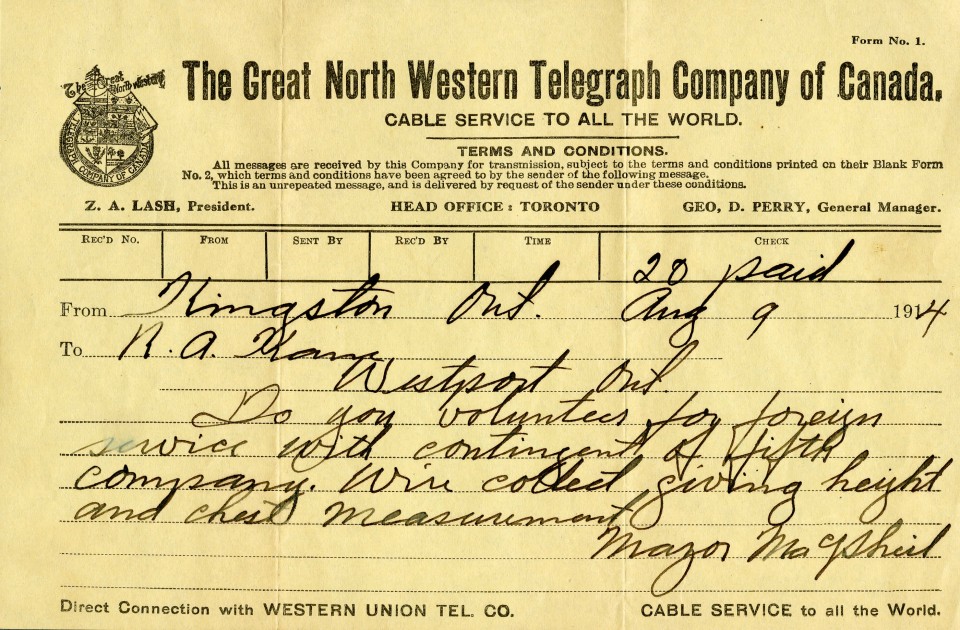 Form No. 1.
The Great North Western
TELEGRAPH COMPANY OF CANADA
The Great North Western Telegraph Company of Canada.
CABLE SERVICE TO ALL THE WORLD.
TERMS AND CONDITIONS.
All messages are received by this Company for transmission, subject to the terms and conditions printed on their Blank Form
No. 2, which terms and conditions have been agreed to by the sender of the following message.
This is an unrepeated message, and is delivered by request of the sender under these conditions.
Z. A. LASH, President. HEAD OFFICE: TORONTO GEO, D. PERRY, General Manager.
REC'D NO. FROM SENT BY REC'D BY TIME CHECK
20 paid
From Kingston Ont. Aug 9 1914
To R. A. Kane
Westport Ont.
Do you volunteer for foreign
service with contingent of fifth
company. Wire collect giving height
and chest measurement
Major
Direct Connection with WESTERN UNION TEL. CO. CABLE SERVICE to all the World.